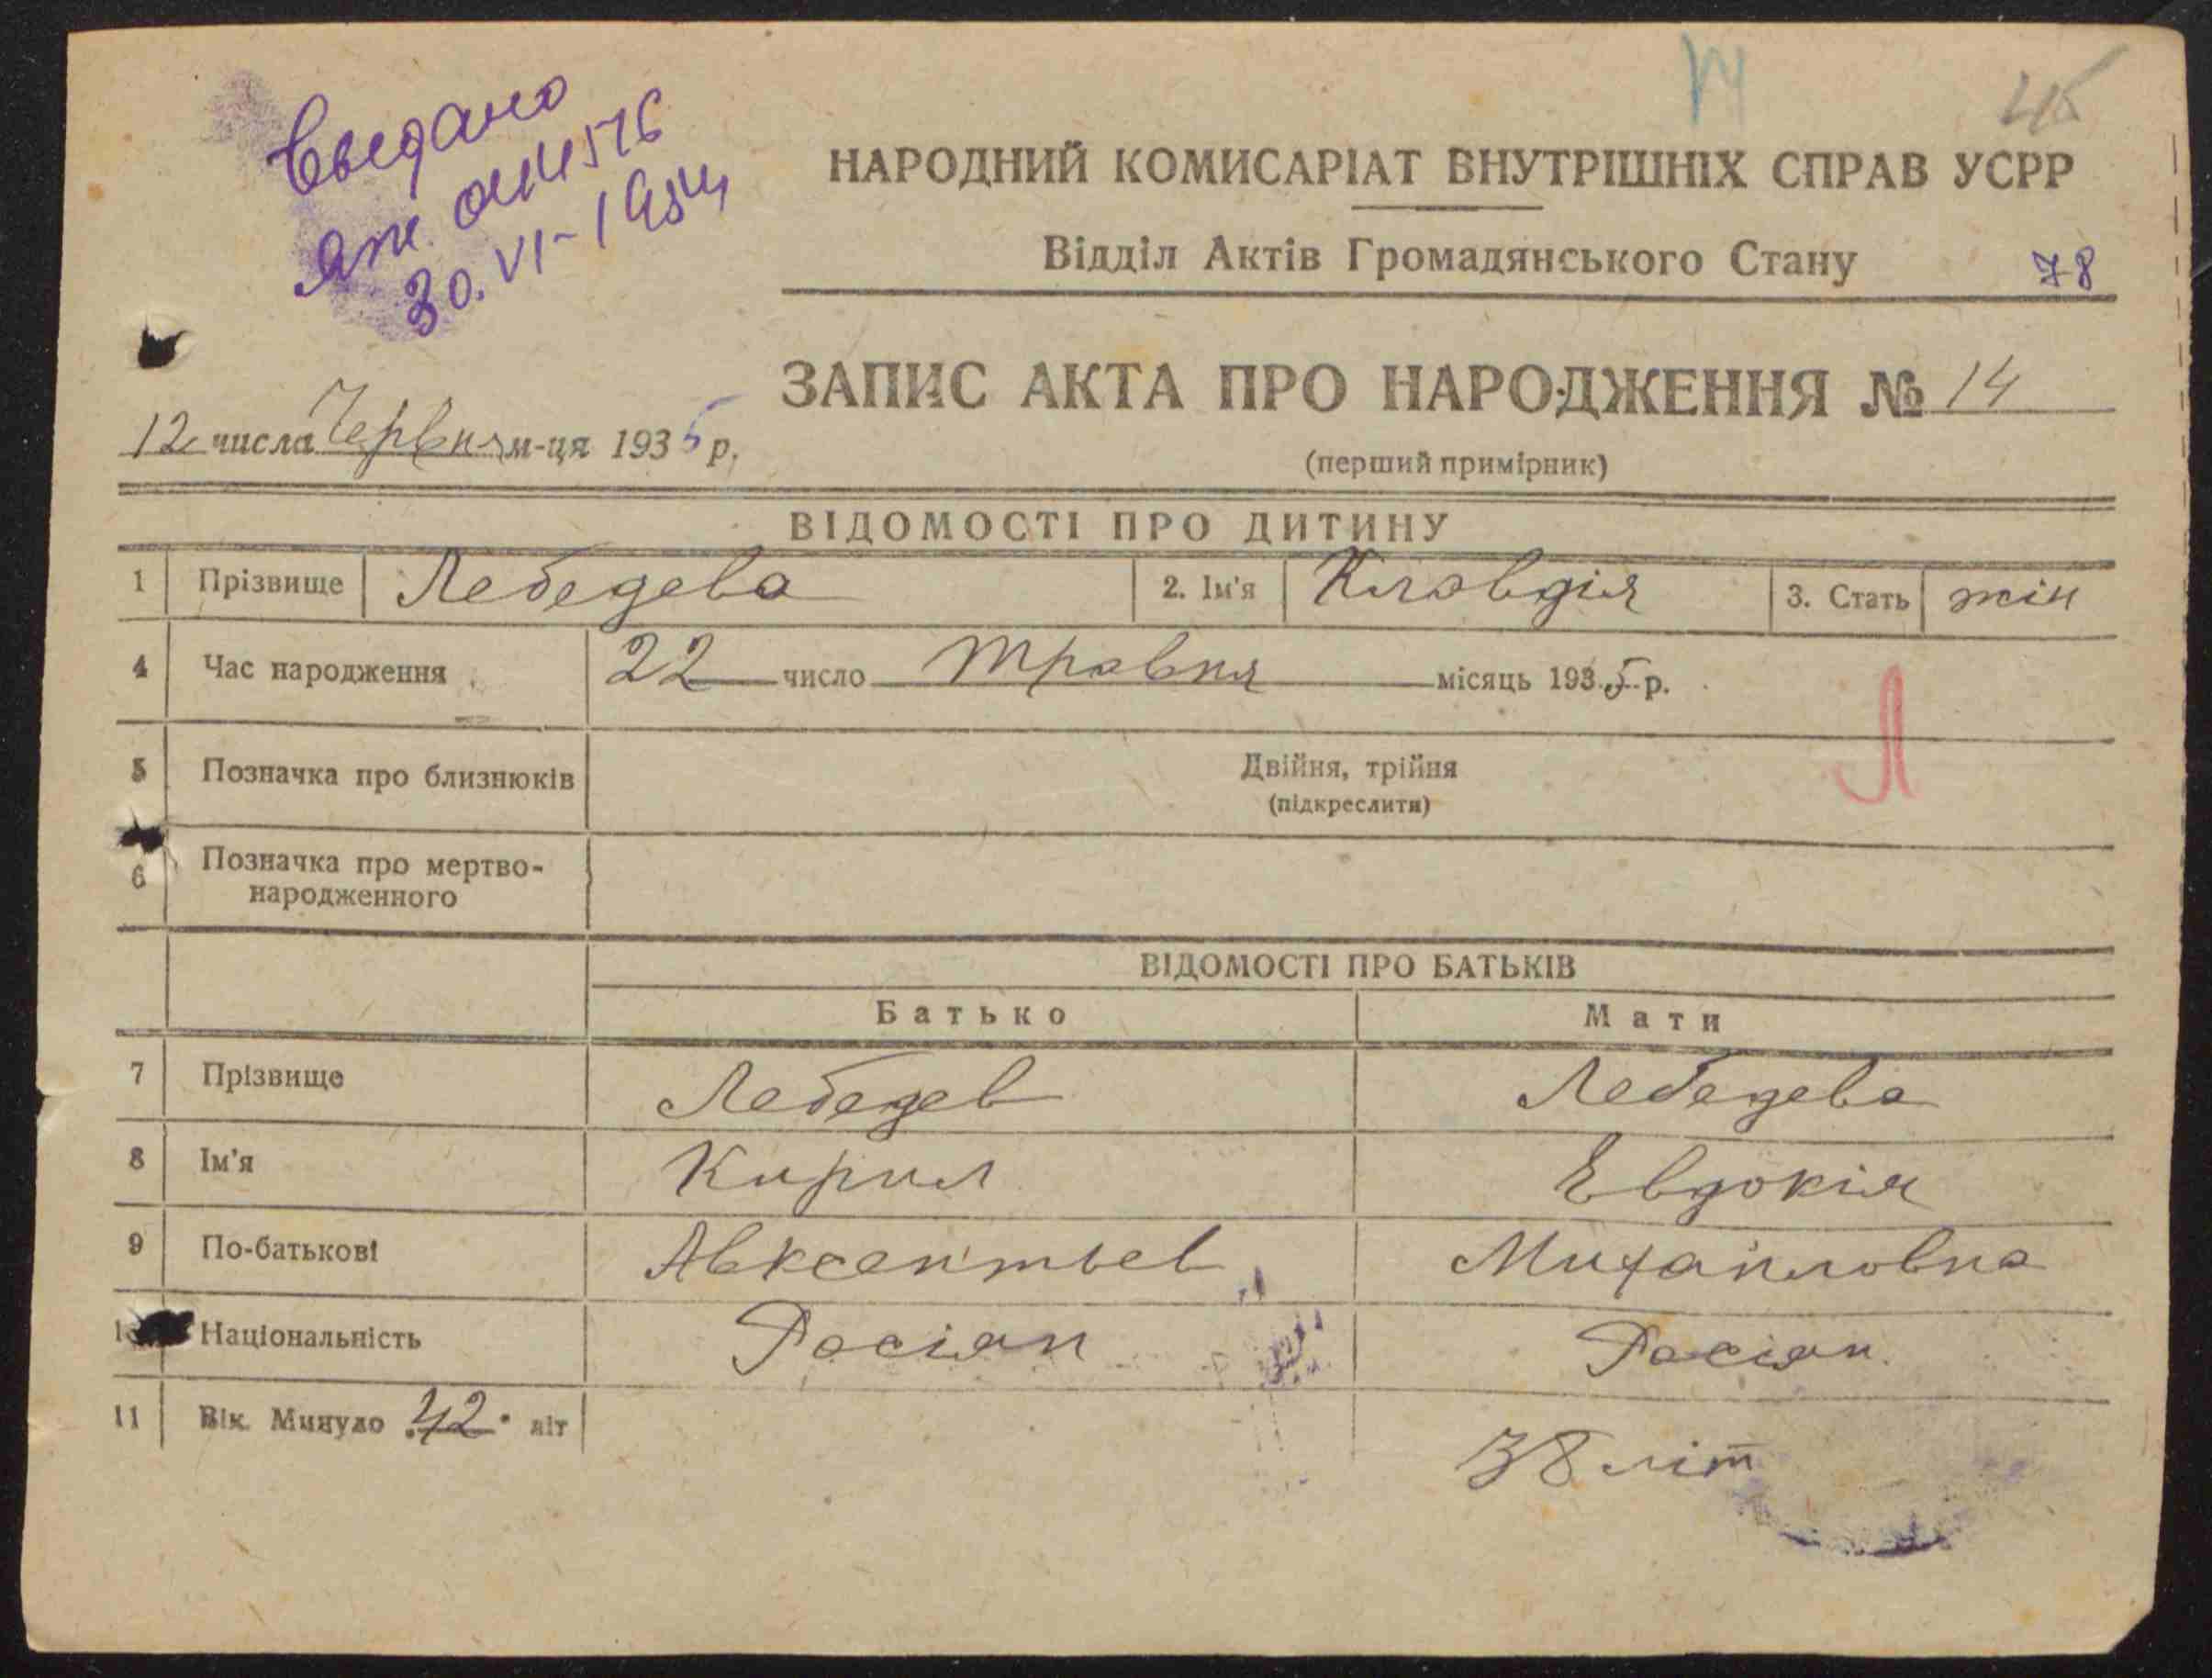 30.VI-1954
45
НАРОДНИЙ КОМИСАРІАТ ВНУТРІШНІХ СПРАВ УСРР
Відділ Актів Громадянського Стану 78
ЗАПИС АКТА ПРО НАРОДЖЕННЯ № 14
12 числа Червня м-ця 1935 р.
(перший примірник)
ВІДОМОСТІ ПРО ДИТИНУ
1 Прізвище Лебедева 2. Ім'я Клавдія 3. Стать жін
4 Час народження 22 число травня місяць 1935 р.
Л
5 Позначка про близнюків Двійня, трійня
(підкреслити)
6 Позначка про мертво-
народженного
ВІДОМОСТІ ПРО БАТЬКІВ
Батько Мати
7 Прізвище Лебедев Лебедева
8 Ім'я Кирил Евдокія
9 По-батькові Авксентьев Михайловна
10 Національність Расіян Расіян.
11 Вік. Минуло 42 літ 38 літ